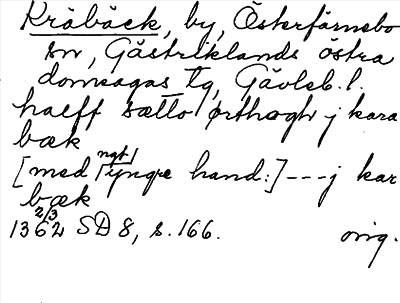 Kråbäck, by, Österfärnebo
sn, Gästriklands östra
domsagas tg, Gävleb. l.
halff sætto ørthogh j kara
bæk
[med ngt yngre hand:] --- j kar
bæk
1362 2/3 SD 8, s. 166. orig.